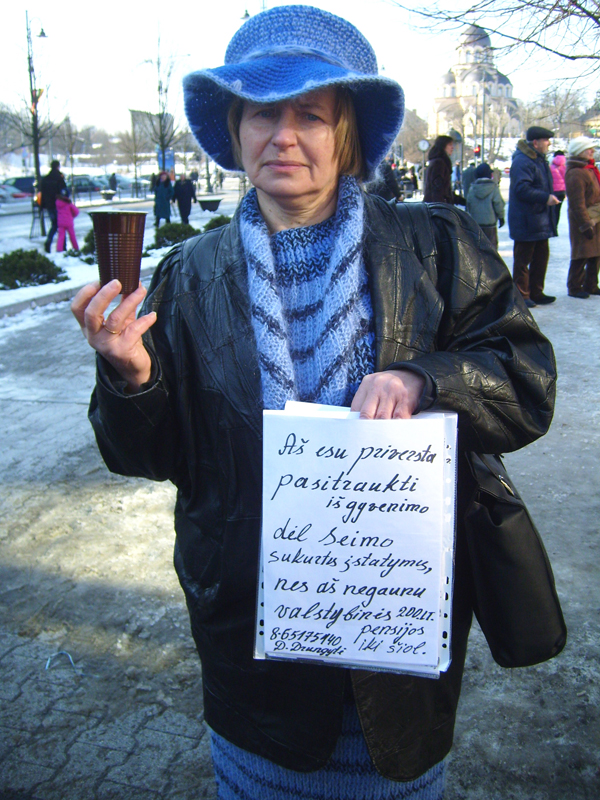 Aš esu priversta
pasitraukti
iš gyvenimo
dėl Seimo
sukurtus įstatymus,
nes aš negaunu
valstybinės 200 LT.
pensijos
8-65175140 iki šiol.
D. Drungyti